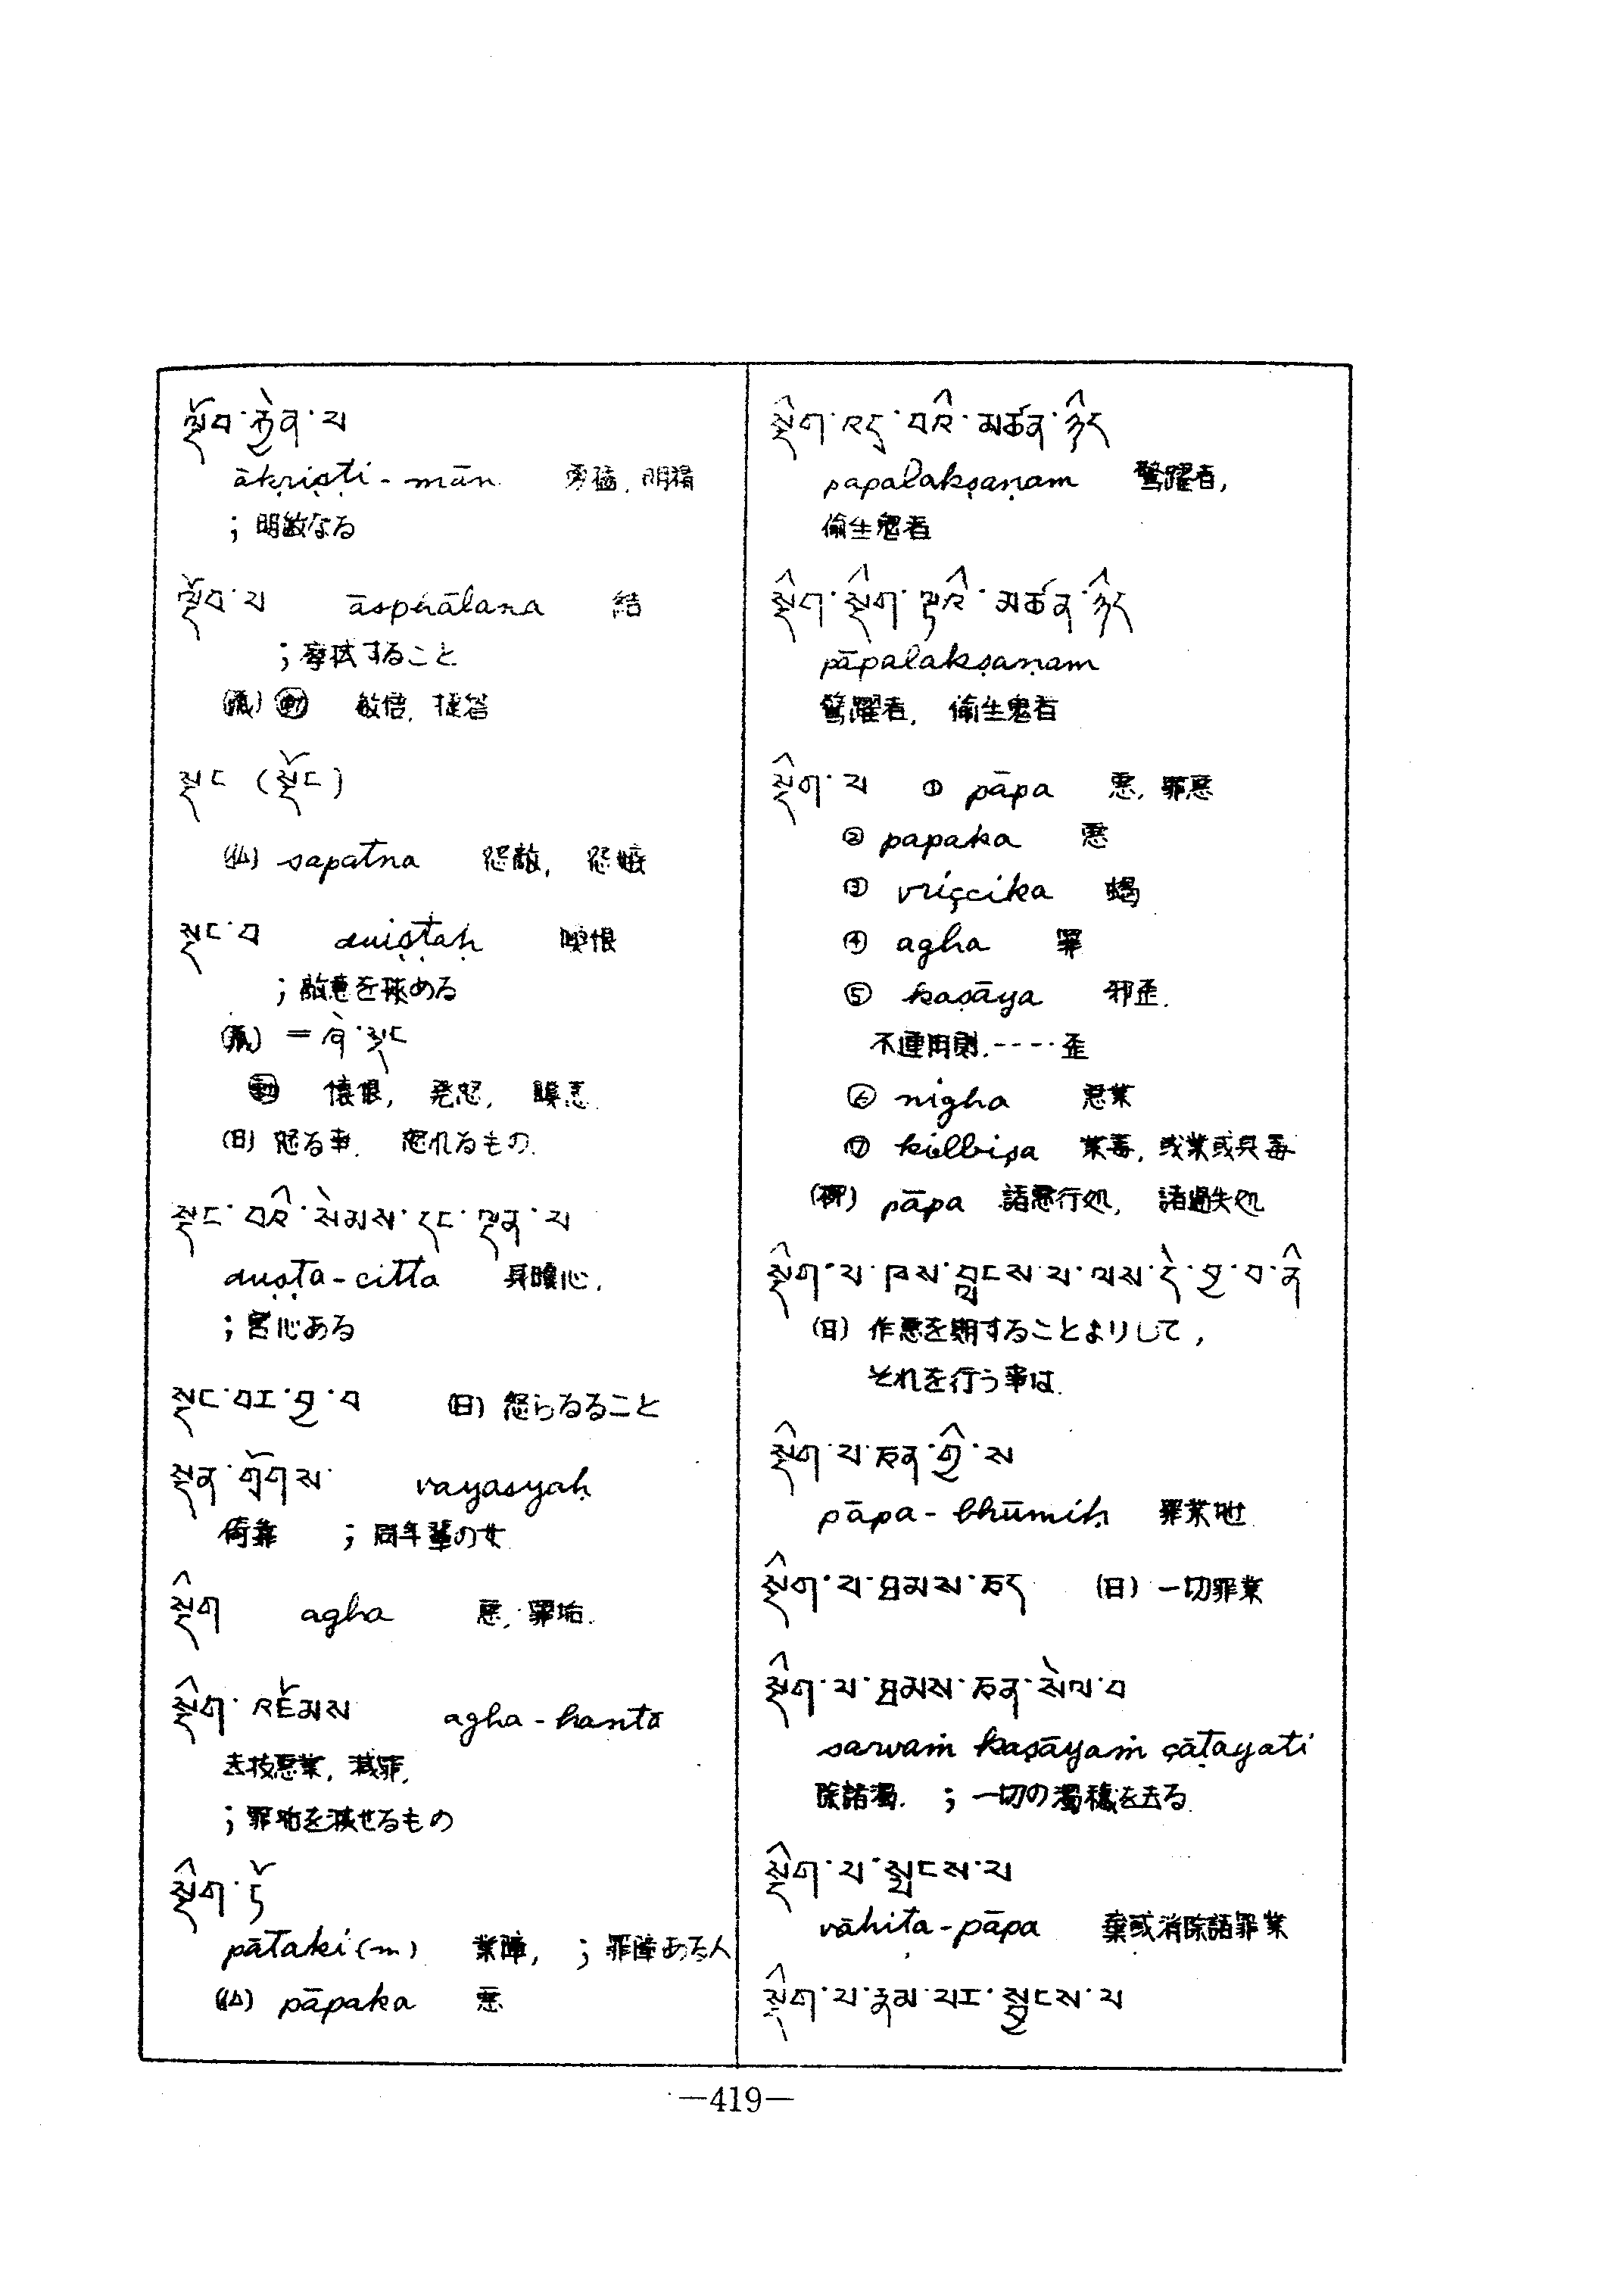 སྡོབ་ཀྱེན་པ
ākṛiṣṭi-mān 明得
；明敏なる
སྡོབ་པ āsphālana 結
；摩拭すること
(蔵) 動 敏倍, 捷答
སྡང (སྡོང)
(仏) sapatna 怨敵, 怨嫉
སྡང་བ duiṣṭaḥ 瞋恨
；敵意を抹める
(蔵) =
動 懐恨, 発怒, 瞋恚
(日) 怒る事. 怒れるもの.
སྡང་བའི་སེམས་དང་ལྡན་པ
duṣṭa-citta 具瞋心,
；害心ある
སྡང་བར་བྱ་བ (日) 怒らるること
སྡན་གྲོགས་ vayasyaḥ
倚靠 ；同年輩の女
སྡིག agha 悪, 罪垢.
སྡིག་འཇོམས agha-hantā
去技悪業, 滅罪,
；罪垢を滅せるもの
སྡིག་ཏོ
pātaki(m) 業障, ；罪障ある人
(仏) pāpaka 悪
—419—
སྡིག་འདུ་བའི་མཚན་ཉིད
papalakṣaṇam 警躍者,
偷生鬼者
སྡིག་སྡིག་ལྟའི་མཚན་ཉིད
pāpalakṣaṇam
警躍者, 偷生鬼者
སྡིག་པ ① pāpa 悪, 罪悪
② papaka 悪
③ vriçcika 蝎
④ agha 罪
⑤ kaṣāya 邪歪.
不運用則.----歪
⑥ nigha 悪業
⑦ kilbiṣa 業毒, 或業或具毒
(榊) pāpa 諸悪行処, 諸過失処
སྡིག་པ་ཁས་བླངས་པ་ལས་དེ་བྱ་བ་ནི
(日) 作悪を期することよりして,
それを行う事は.
སྡིག་པ་ཅན་གྱི་ས
pāpa-bhūmiḥ 罪業地
སྡིག་པ་ཐམས་ཅད (日) 一切罪業
སྡིག་པ་ཐམས་ཅན་སེལ་བ
sarvaṁ kaṣāyaṁ çāṭayati
除諸濁. ；一切の濁穢を去る.
སྡིག་པ་སྤངས་པ
vāhita-pāpa 棄或消除諸罪業
སྡིག་པ་རྣམ་པར་སྦྱངས་པ